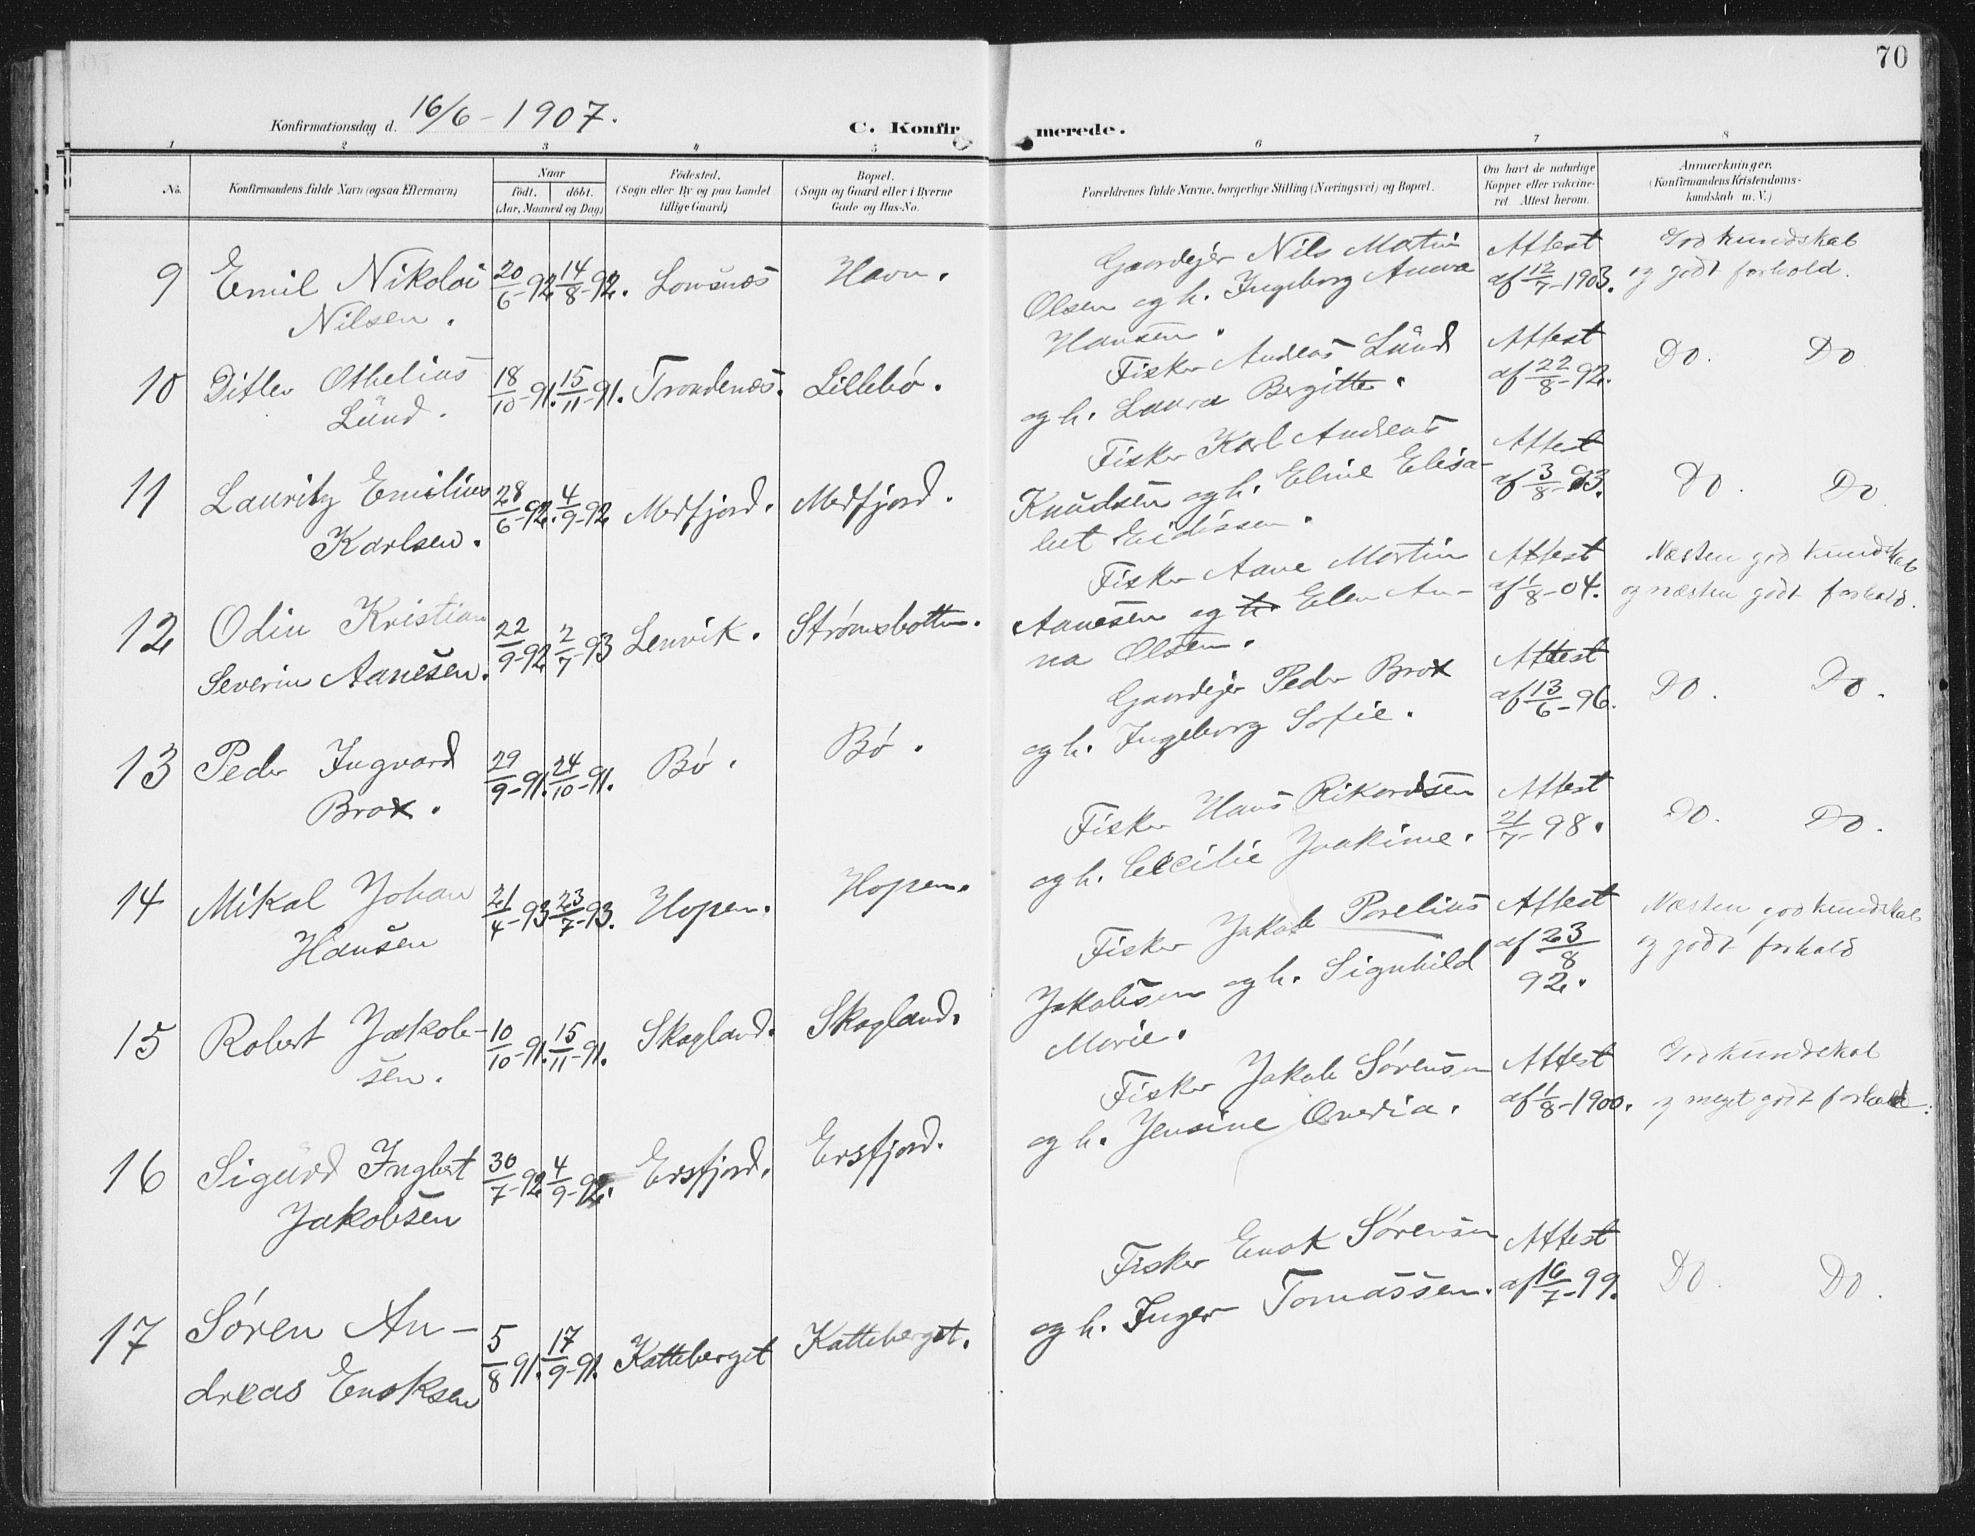 70
Konfirmationsdag d. 16/6 - 1907.
C. Konfirmerede.
1 2 3 4 5 6 7 8
No.
Konfirmandens fulde Navn (ogsaa Efternavn)
Naar
født. døbt.
(Aar, Maaned og Dag)
Fødested.
(Sogn eller By og paa Landet
tillige Gaard)
Bopæl.
(Sogn og Gaard eller i Byerne
Gade og Hus-No.
Forældrenes fulde Navne, borgerlige Stilling (Næringsvei) og Bopæl.
Om havt de naturlige
Kopper eller vakcine-
ret. Attest herom.
Anmærkninger.
(Konfirmandens Kristendoms-
kundskab m. V.)
9 Emil Nikolai
Nilsen.
20/6-92. 14/8-92. Havn.
Gaardejer Nils Martin
Olsen og h. Ingeborg Anna
Hansen.
Attest
af 12/7-1903.
God kundskab
og godt forhold.
10 Ditlev Othelius
Lund.
18/10-91. 15/11-91. Trondenæs. Lillebø.
Fisker Andreas Lund
og h. Laura Bergitte.
Attest
af 22/8-92.
Do. Do
11 Lauritz Emilius
Karlsen.
28/6-92. 4/9-92 Medfjord. Medfjord.
Fisker Karl Andreas
Knudsen og h. Eline Elisa-
bet Eidissen.
Attest
af 3/8-93.
Do. Do
12 Odin Kristian
Severin Aanesen.
22/9-92 2/7-93 Lenvik. Strømsbotten.
Fisker Aane Martin
Aanesen og h. Elen An-
na Olsen.
Attest
af 1/8-04.
Næsten god kundskab
og næsten godt forhold.
13 Peder Ingvard
Brox.
29/9-91. 24/10-91. Bø. Bø.
Gaardejer Peder Brox
og h. Ingeborg Sofie.
Attest
af 13/6-96.
Do. Do.
14 Mikal Johan
Hansen
21/4-93 23/7-93. Hopen. Hopen.
Fisker Hans Rikardsen
og h. Cecilie Joakime.
Attest
21/7-98.
Do. Do.
15 Robert Jakob-
sen.
10/10-91. 15/11-91. Skogland. Skogland.
Fisker Jakob Porelius
Jakobsen og h. Signhild
Marie.
Attest
af 23/8
92.
Næsten god kundskab
og godt forhold
16 Sigurd Ingbert
Jakobsen
30/7-92 4/9-92. Ersfjord. Ersfjord.
Fisker Jakob Sørensen
og h. Jensine
Attest
af 1/8-1900.
God kundskab
og meget godt forhold.
17 Søren An-
dreas Enoksen
5/8 91. 17/9-91. Katteberget Katteberget.
Fisker Enok Sørensen
og h. Inger Tomassen.
Attest
af 16/7-99.
Do. Do.